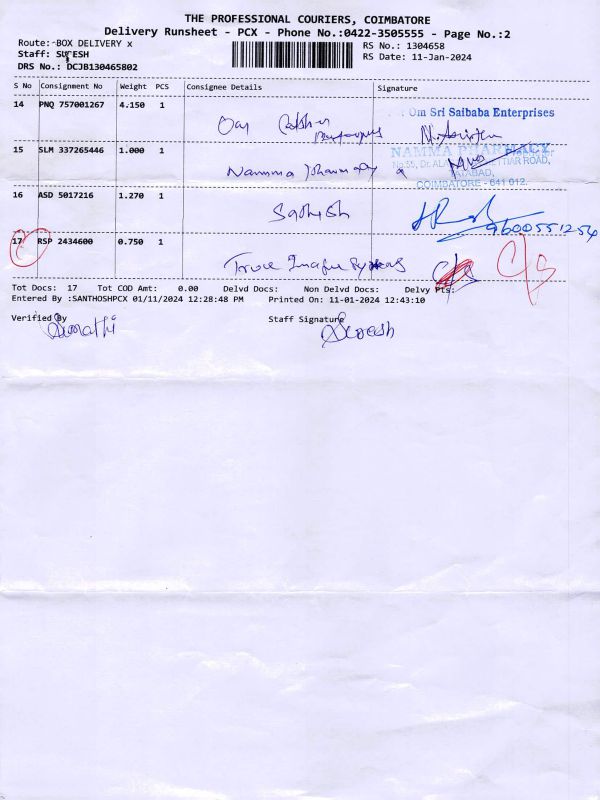 THE PROFESSIONAL COURIERS, COIMBATORE
Delivery Runsheet - PCX - Phone No.:0422-3505555 - Page No.:2
Route: BOX DELIVERY x
RS No.: 1304658
Staff: SURESH
RS Date: 11-Jan-2024
DRS No.: DCJB130465802
S No Consignment No Weight PCS Consignee Details Signature
14 PNQ 757001267 4.150 1
Om Sri Saibaba Enterprises
15 SLM 337265446 1.000 1
Namma
NAMMA PHARMACY
No:55, Dr. ROAD,
COIMBATORE - 641 012.
16 ASD 5017216 1.270 1
Sathish
9600551254
17 RSP 2434600 0.750 1
True
C/s C/s
Tot Docs: 17 Tot COD Amt: 0.00 Delvd Docs: Non Delvd Docs: Delvy Pts:
Entered By :SANTHOSHPCX 01/11/2024 12:28:48 PM Printed On: 11-01-2024 12:43:10
Verified By Staff Signature
Sumathi Suresh